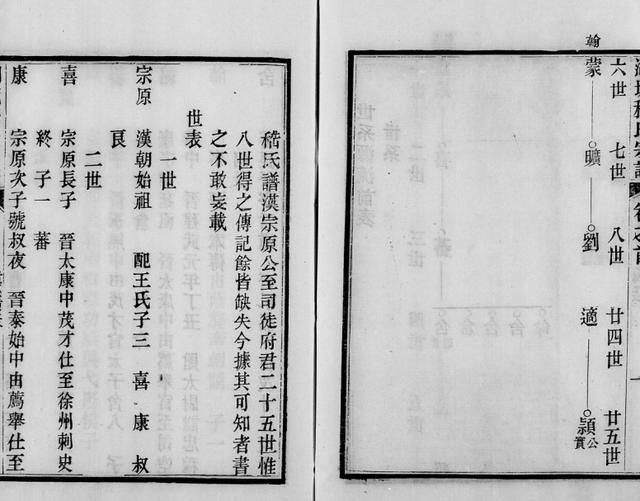 六世 七世 八世 廿四世 廿五世
翰
蒙 曠 劉 適 頴公實
嵇氏譜漢宗原公至司徒府君二十五世惟
八世得之傳記餘皆缺失今據其可知者書
之不敢妄載
世表
一世
宗原 漢朝始祖 配王氏子三 喜 康 叔
良
二世
喜 宗原長子 晉太康中茂才仕至徐州刺史
終 子一 蕃
康 宗原次子號叔夜 晉泰始中由薦舉仕至